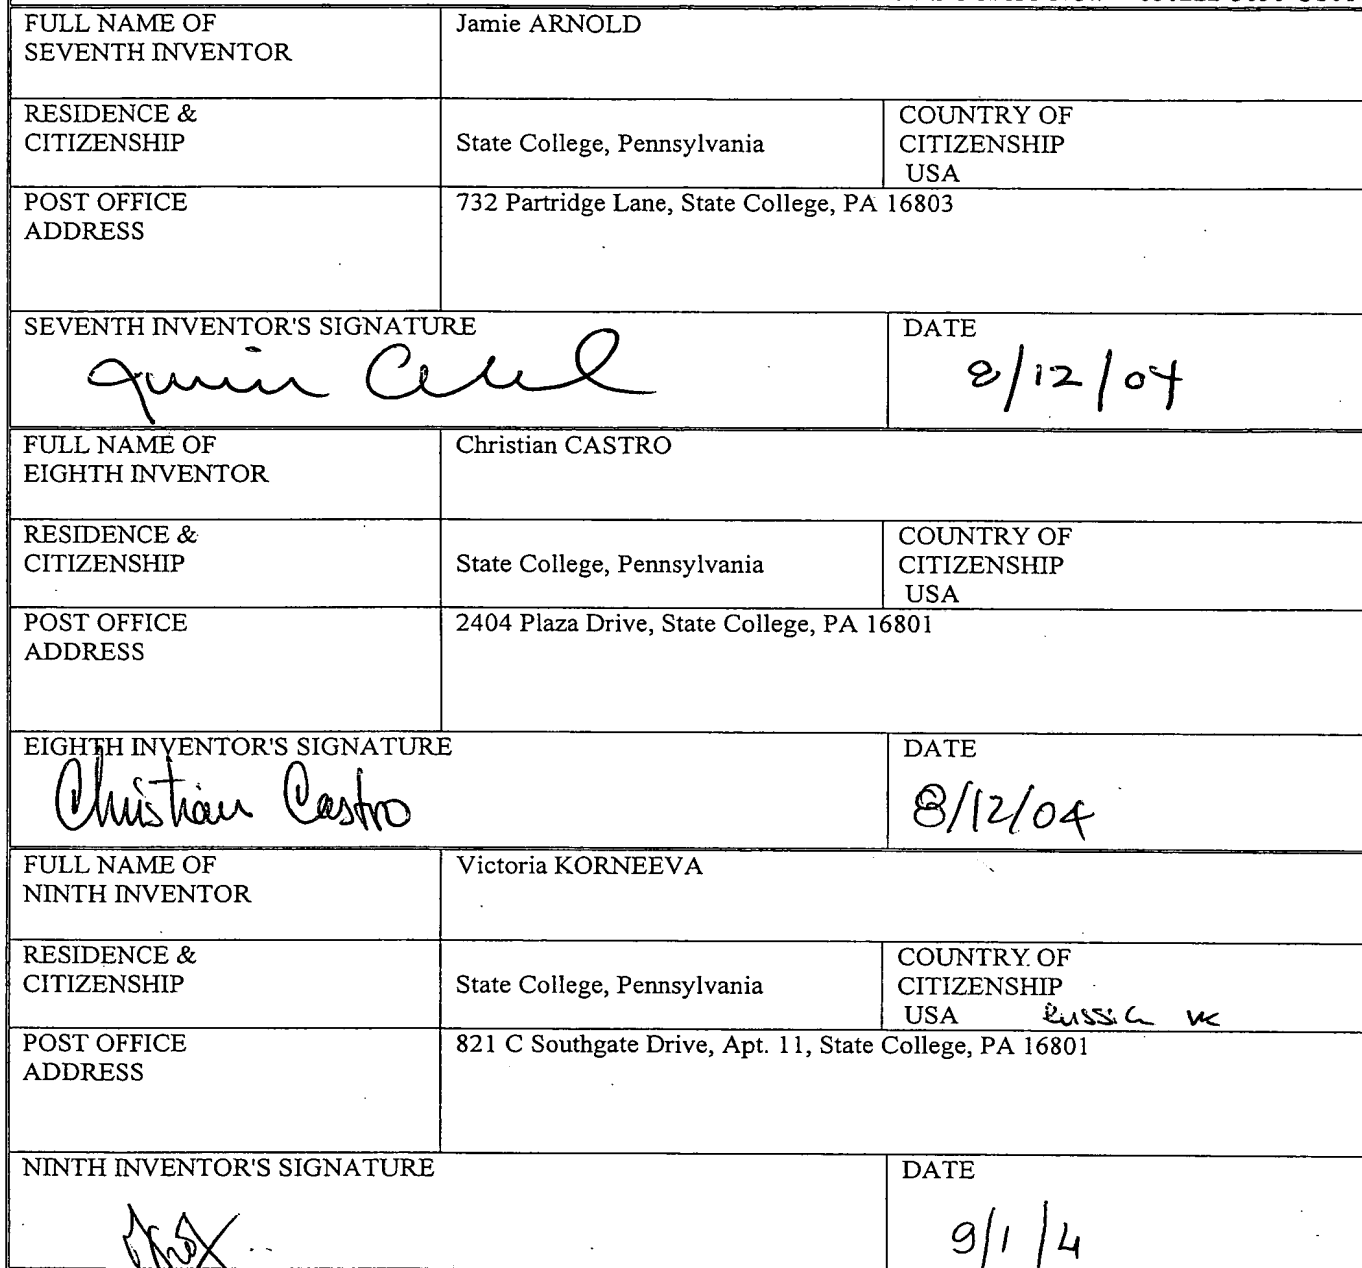 FULL NAME OF
SEVENTH INVENTOR
Jamie ARNOLD
RESIDENCE &
CITIZENSHIP
State College, Pennsylvania
COUNTRY OF
CITIZENSHIP
USA
POST OFFICE
ADDRESS
732 Partridge Lane, State College, PA 16803
SEVENTH INVENTOR'S SIGNATURE
DATE
8/12/04
FULL NAME OF
EIGHTH INVENTOR
Christian CASTRO
RESIDENCE &
CITIZENSHIP
State College, Pennsylvania
COUNTRY OF
CITIZENSHIP
USA
POST OFFICE
ADDRESS
2404 Plaza Drive, State College, PA 16801
EIGHTH INVENTOR'S SIGNATURE
Christian Castro
DATE
8/12/04
FULL NAME OF
NINTH INVENTOR
Victoria KORNEEVA
RESIDENCE &
CITIZENSHIP
State College, Pennsylvania
COUNTRY OF
CITIZENSHIP
USA Russia VK
POST OFFICE
ADDRESS
821 C Southgate Drive, Apt. 11, State College, PA 16801
NINTH INVENTOR'S SIGNATURE
DATE
9/1/4